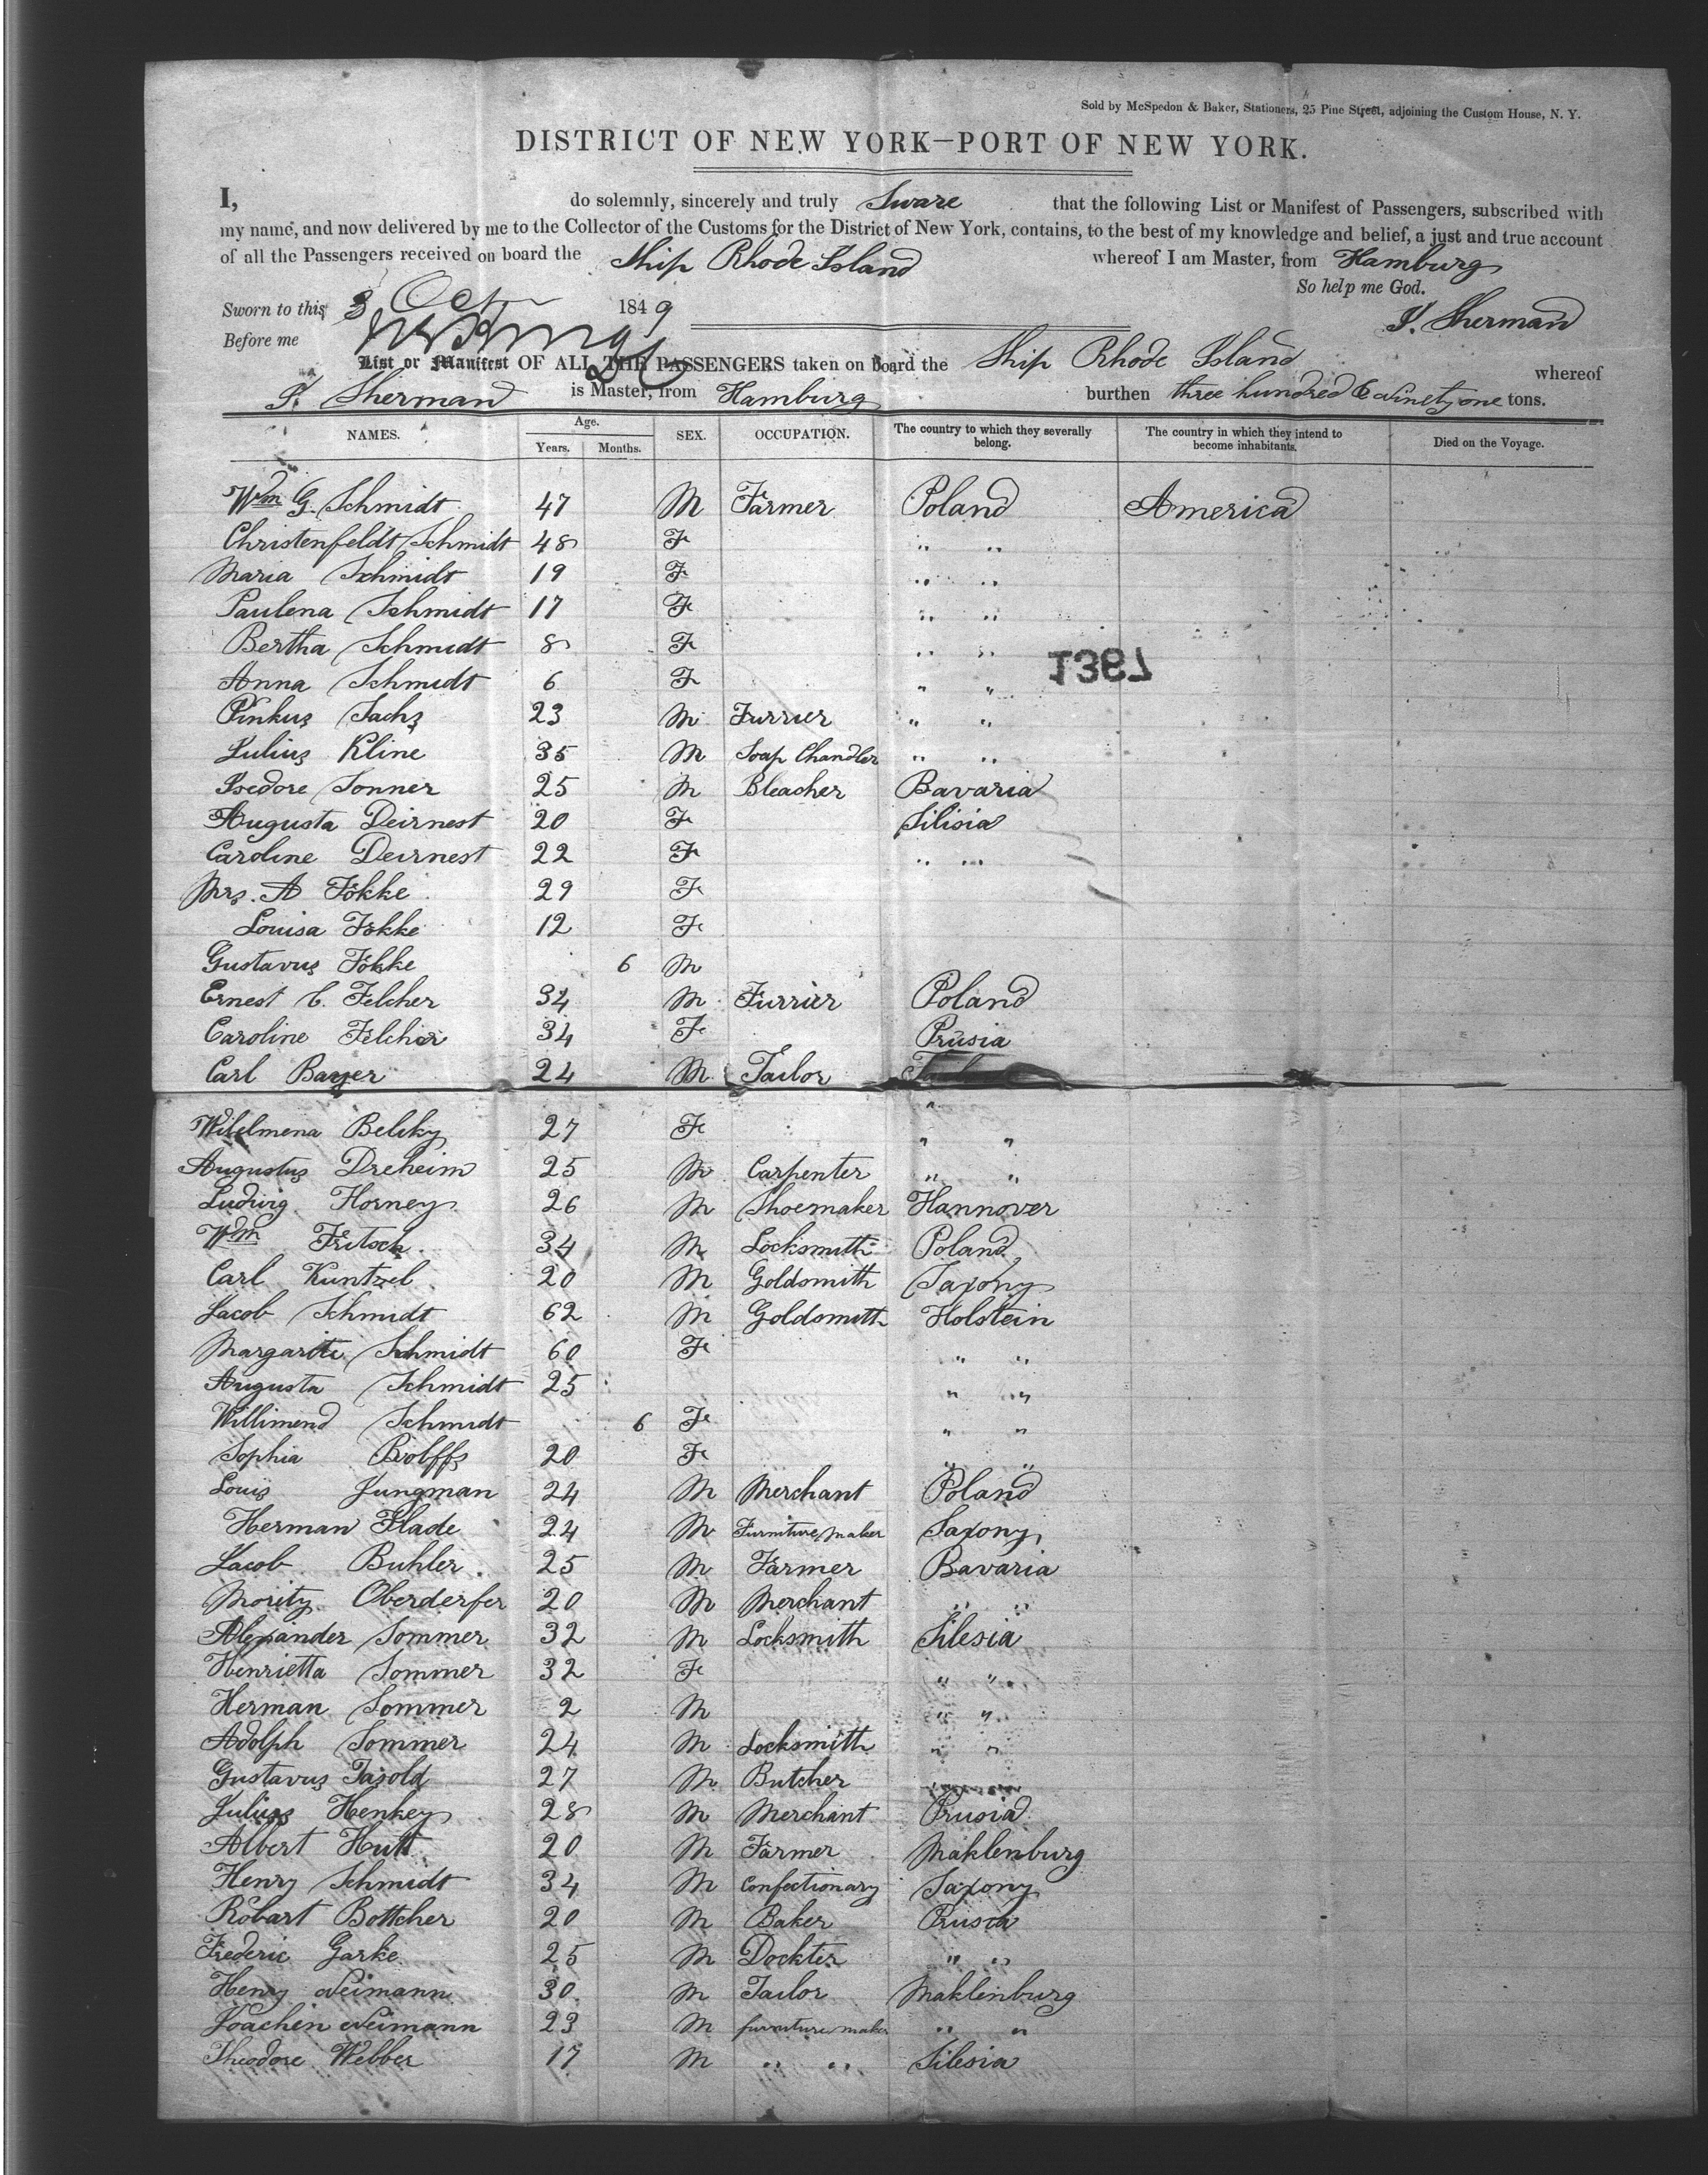 Sold by McSpedon & Baker, Stationers, 25 Pine Street, adjoining the Custom House, N. Y.
DISTRICT OF NEW YORK—PORT OF NEW YORK.
I, do solemnly, sincerely and truly Sware that the following List or Manifest of Passengers, subscribed with
my name, and now delivered by me to the Collector of the Customs for the District of New York, contains, to the best of my knowledge and belief, a just and true account
of all the Passengers received on board the Ship Rhode Island whereof I am Master, from Hamburg
So help me God.
Sworn to this 3 Oct 1849 S. Sherman
Before me
List or Manifest OF ALL THE PASSENGERS taken on board the Ship Rhode Island whereof
S. Sherman is Master, from Hamburg burthen three hundred & Ninety one tons.
NAMES. Age. Years. Months. SEX. OCCUPATION. The country to which they severally belong. The country in which they intend to become inhabitants. Died on the Voyage.
Wm G. Schmidt 47 M Farmer Poland America
Christenfeldt Schmidt 48 F " "
Maria Schmidt 19 F " "
Paulena Schmidt 17 F " "
Bertha Schmidt 8 F " "
1367
Anna Schmidt 6 F " "
Pinkus Sachs 23 M Furrier " "
Julius Kline 35 M Soap Chandler " "
Isedore Sonner 25 M Bleacher Bavaria
Augusta Deirnest 20 F Silisia
Caroline Deirnest 22 F " "
Mrs. A Fökke 29 F
Louisa Fökke 12 F
Gustavus Fökke 6 M
Ernest C. Felcher 34 M Furrier Poland
Caroline Felcher 34 F Prusia
Carl Bayer 24 M Tailor
Wilelmena Belcky 27 F " "
Augustus Dreheim 25 M Carpenter " "
Ludwig Horney 26 M Shoemaker Hannover
Wm Fritsch 34 M Locksmith Poland
Carl Kuntzel 20 M Goldsmith Saxony
Jacob Schmidt 62 M Goldsmith Holstein
Margarite Schmidt 60 F " "
Augusta Schmidt 25 " "
Willimend Schmidt 6 F " "
Sophia Rolffs 20 F " "
Louis Jungman 24 M Merchant Poland
Herman Flade 24 M Furniture maker Saxony
Jacob Buhler 25 M Farmer Bavaria
Mority Oberderfer 20 M Merchant " "
Alexander Sommer 32 M Locksmith Silesia
Henrietta Sommer 32 F " "
Herman Sommer 2 M " "
Adolph Sommer 24 M Locksmith " "
Gustavus Jasold 27 M Butcher " "
Julius Henkey 28 M Merchant Prusia
Albert Hutt 20 M Farmer Maklenburg
Henry Schmidt 34 M Confectionary Saxony
Robart Bottcher 20 M Baker Prusia
Frederic Garke 25 M Dockter " "
Henry Neimann 30 M Tailor Maklenburg
Joachin Neimann 23 M furniture maker " "
Theodore Webber 17 M " " Silesia